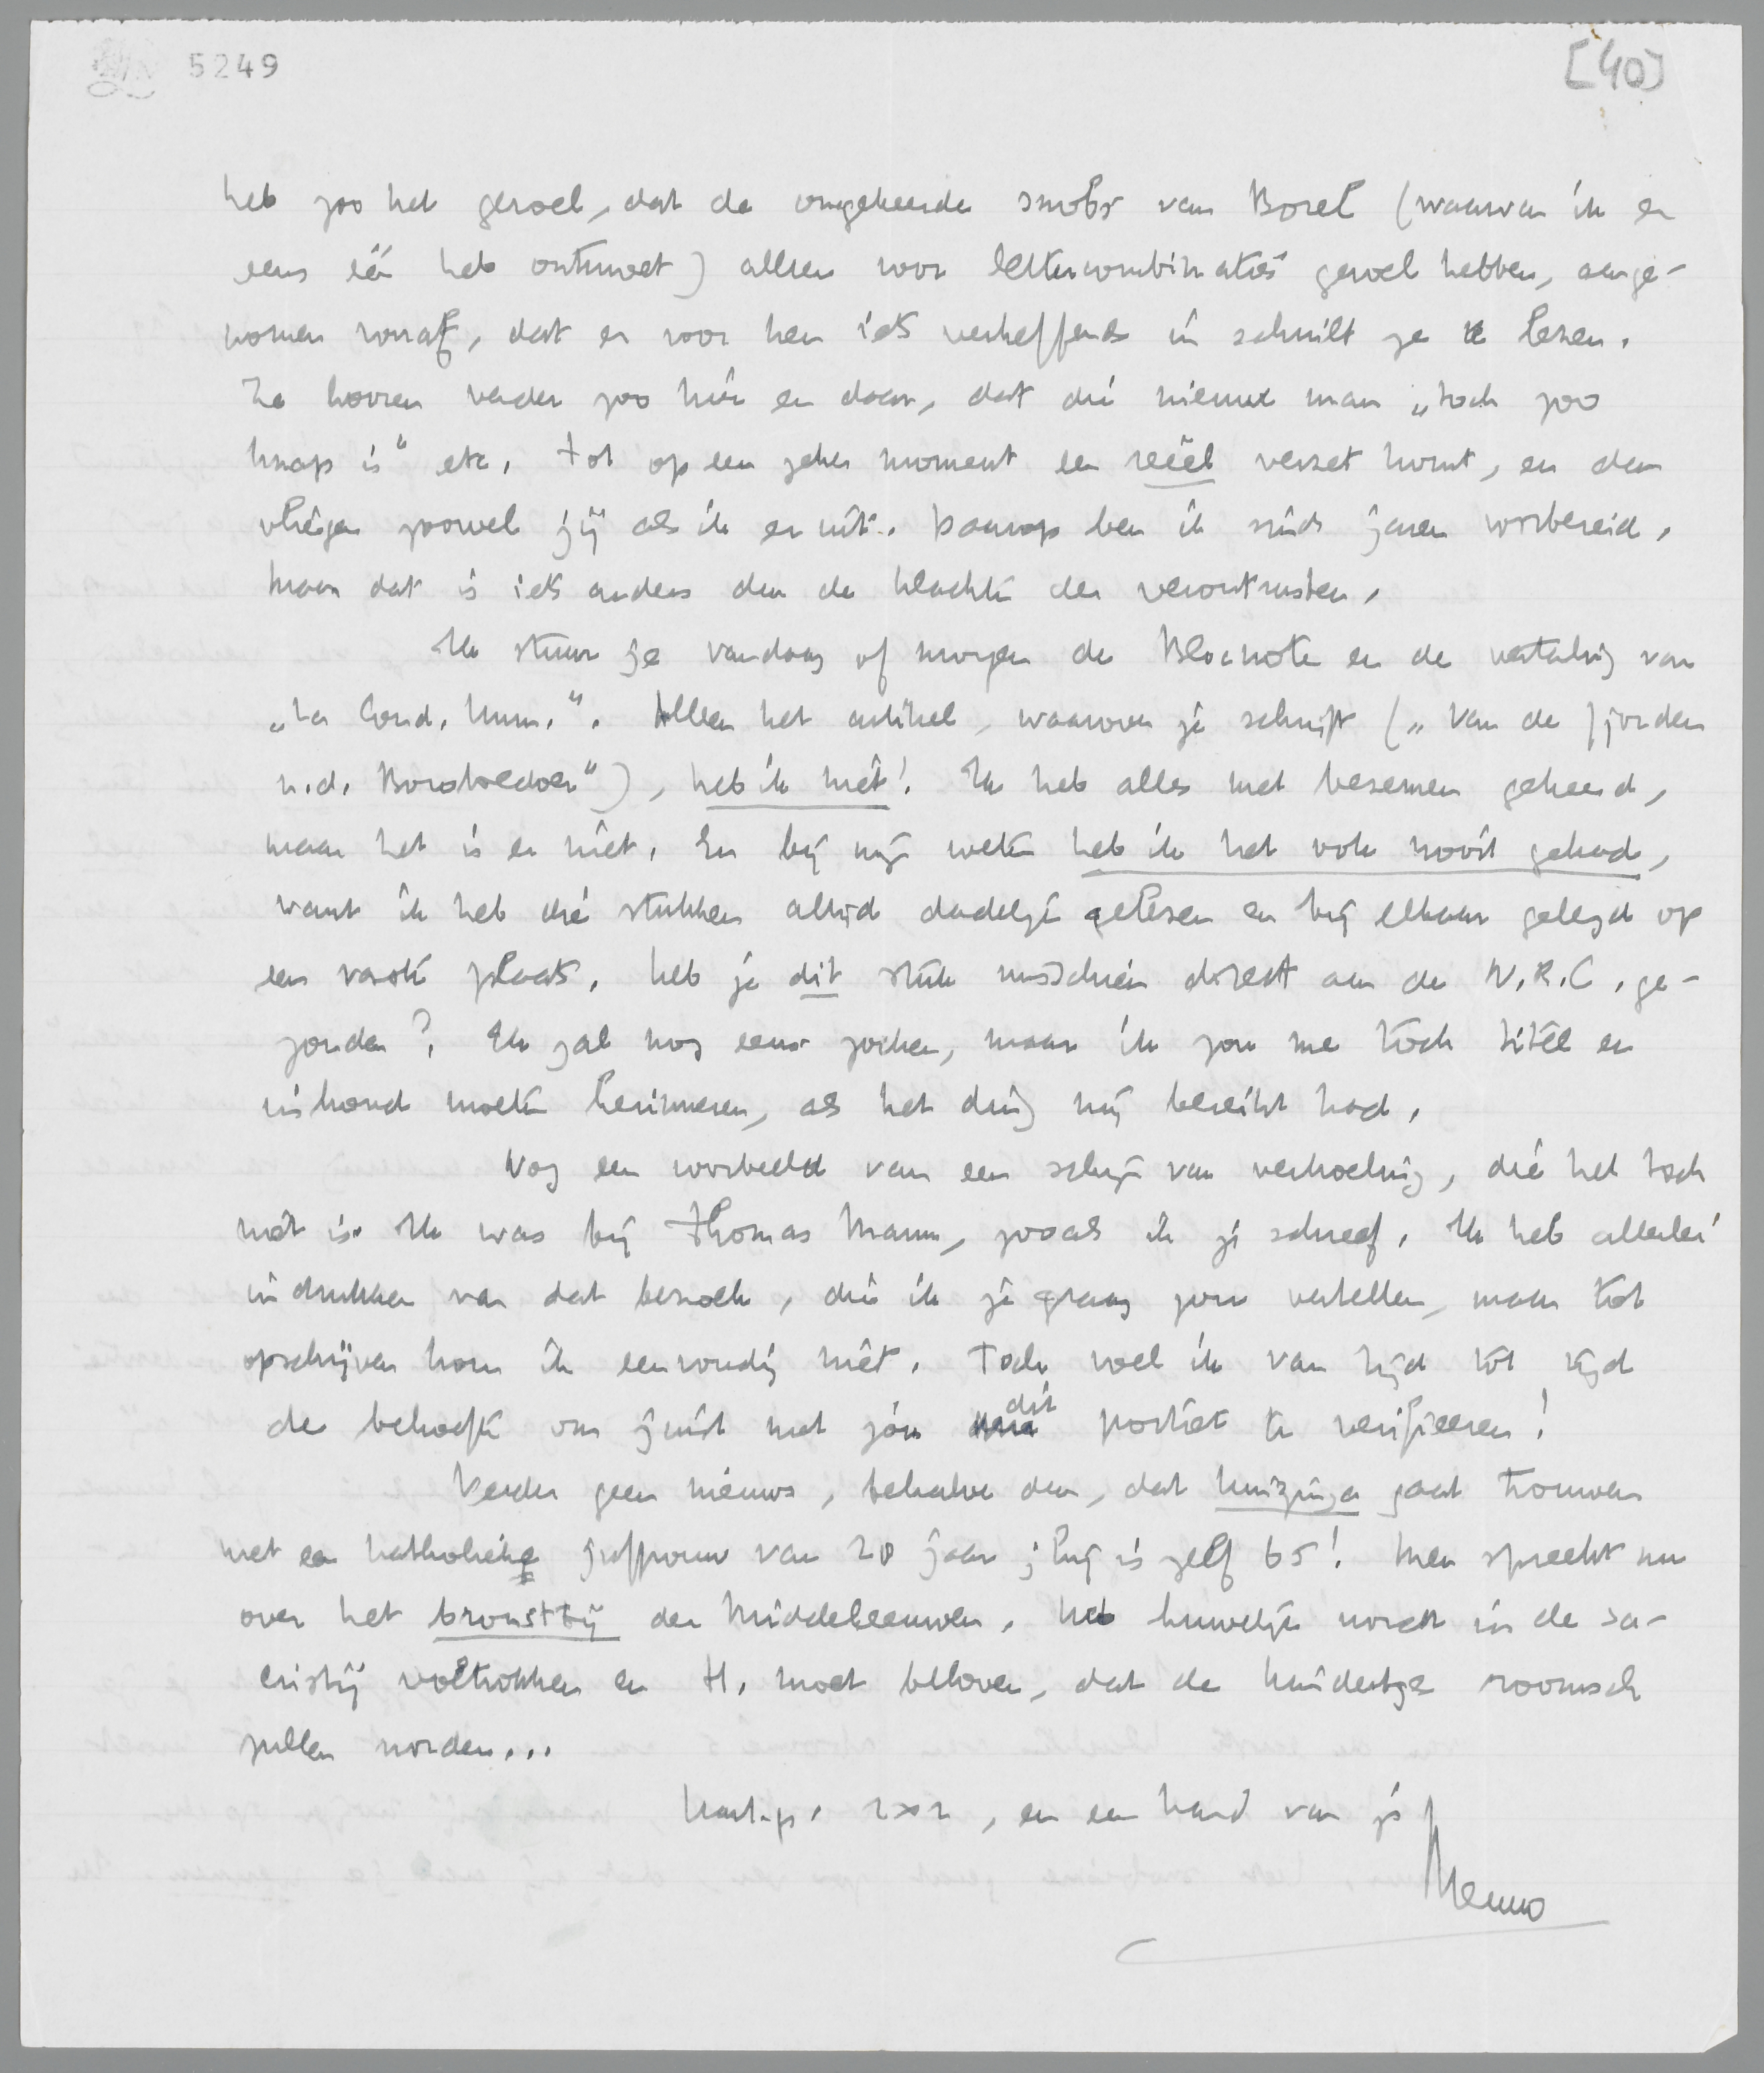 5249
[40]
heb zoo het gevoel, dat de omgekeerde snobs van Borel (waarvan ik er
eens één heb ontmoet) alleen voor lettercombinaties gevoel hebben, aange-
nomen vooraf, dat er voor hen iets verheffends in schuilt ze te lezen.
Ze hooren verder zoo hier en daar, dat die nieuwe man „toch zoo
knap is" etc. Tot op een zeker moment een reëel verzet komt, en dan
vliegen zoowel jij als ik er uit. Daarop ben ik sinds jaren voorbereid,
maar dat is iets anders dan de klachten der verontrusten.
Ik stuur je vandaag of morgen de Blocnote en de vertaling van
„La Cond. Hum.". Alleen het artikel, waarover je schrijft („Van de fjorden
n.d. Boroboedoer"), heb ik niet! Ik heb alles met bezemen gekeerd,
maar het is er niet. En bij mijn weten heb ik het ook nooit gehad,
want ik heb die stukken altijd dadelijk gelezen en bij elkaar gelegd op
een vaste plaats. Heb je dit stuk misschien direct aan de N.R.C. ge-
zonden? Ik zal nog eens zoeken, maar ik zou me toch titel en
inhoud moeten herinneren, als het ding mij bereikt had.
Nog een voorbeeld van een schijn van verkoeling, die het toch
niet is. Ik was bij Thomas Mann, zooals ik je schreef. Ik heb allerlei
indrukken van dat bezoek, die ik je graag zou vertellen, maar tot
opschrijven kom ik eenvoudig niet. Toch voel ik van tijd tot tijd
de behoefte om juist met jóu dit portret te verifieeren!
Verder geen nieuws, behalve dan, dat Huizinga gaat trouwen
met een katholieke juffrouw van 28 jaar; hij is zelf 65! Men spreekt nu
over het bronsttij der Middeleeuwen. Het huwelijk wordt in de sa-
cristij voltrokken en H. moet beloven, dat de kindertjes roomsch
zullen worden...
Hart. gr. 2 x 2, en een hand van je
Menno